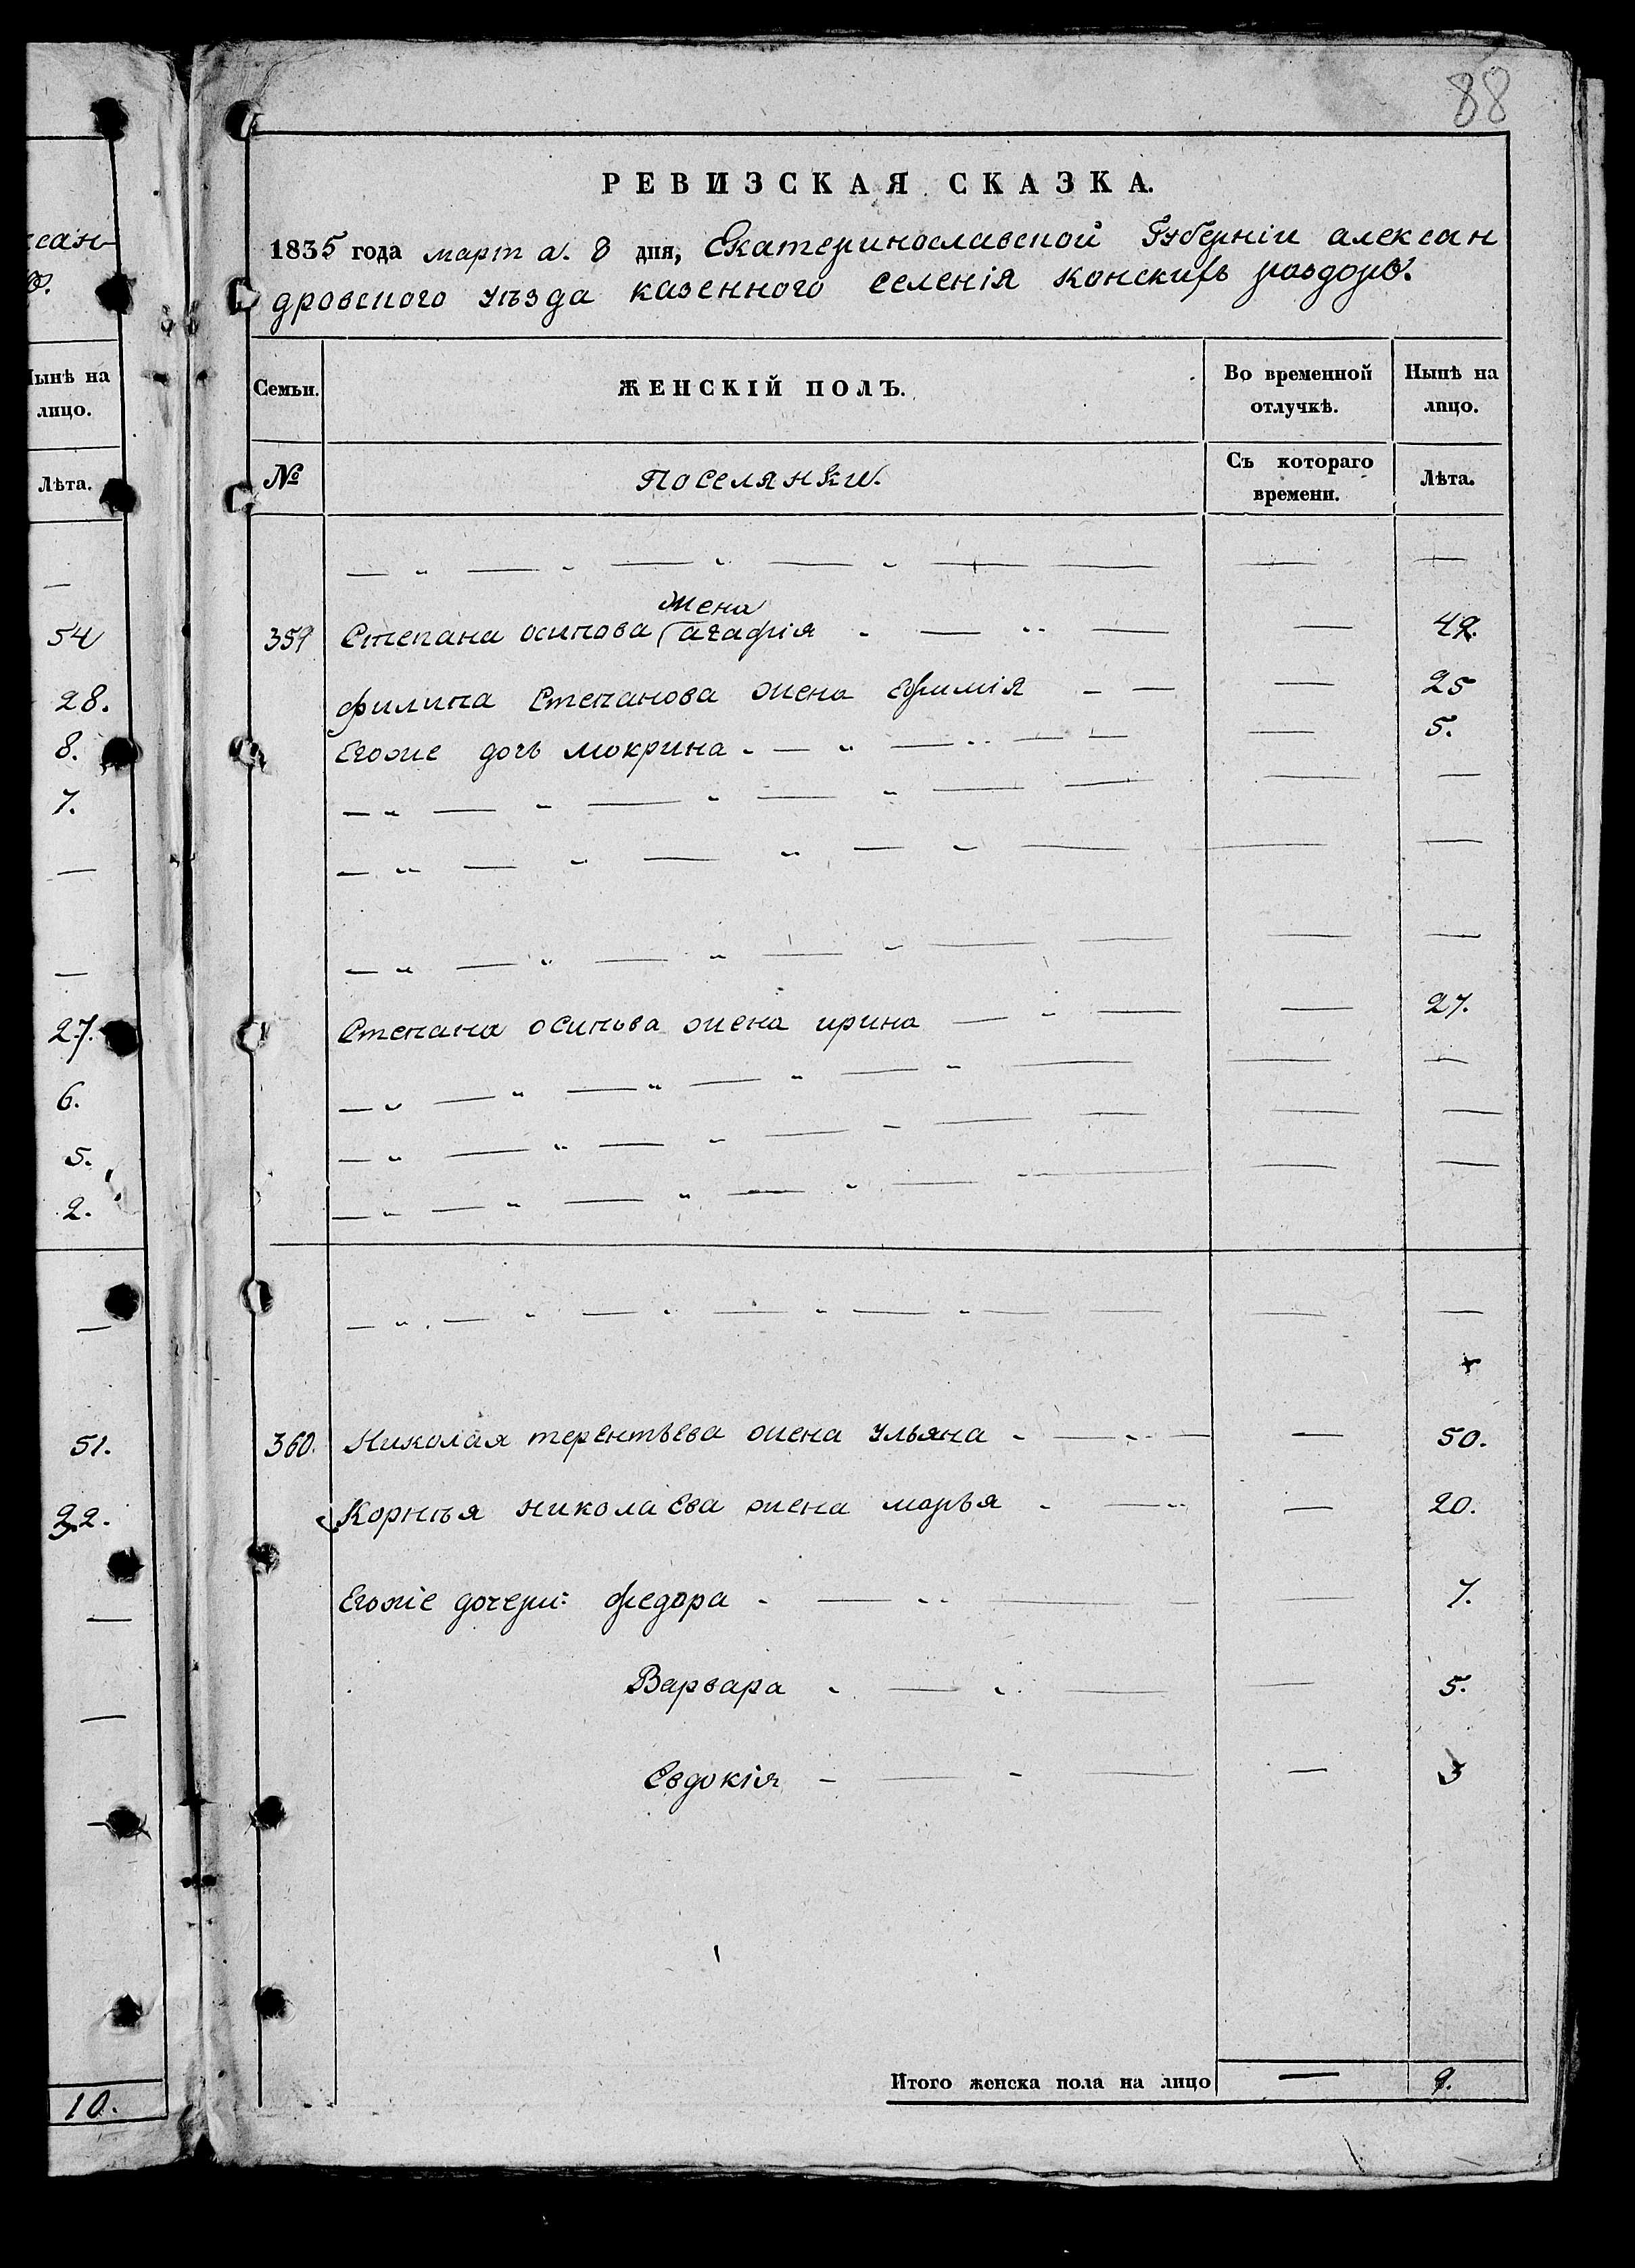 88
РЕВИЗСКАЯ СКАЗКА.
1835 года март а. 8 дня, Екатеринославской Губерніи алексан
дровского уѣзда казенного селенія конскихъ роздоръ.
Семьи.
ЖЕНСКІЙ ПОЛЪ.
Во временной отлучкѣ.
Нынѣ на лицо.
№
Поселянки.
Съ котораго времени.
Лѣта.
жена
359 Степана осипова агафія — 49.
филипа Степанова жена Ефимія — 25
Егоже дочь мокрина — 5.
Степана осипова жена ирина — 27.
360. Николая терентьева жена Ульяна — 50.
Корнѣя николаева жена марья — 20.
Егоже дочери: федора — 7.
Варвара — 5.
Евдокія — 3
Итого женска пола на лицо — 9.
сан-
Нынѣ на
лицо.
Лѣта.
54
28.
8.
7.
27.
6.
5.
2.
51.
22.
10.